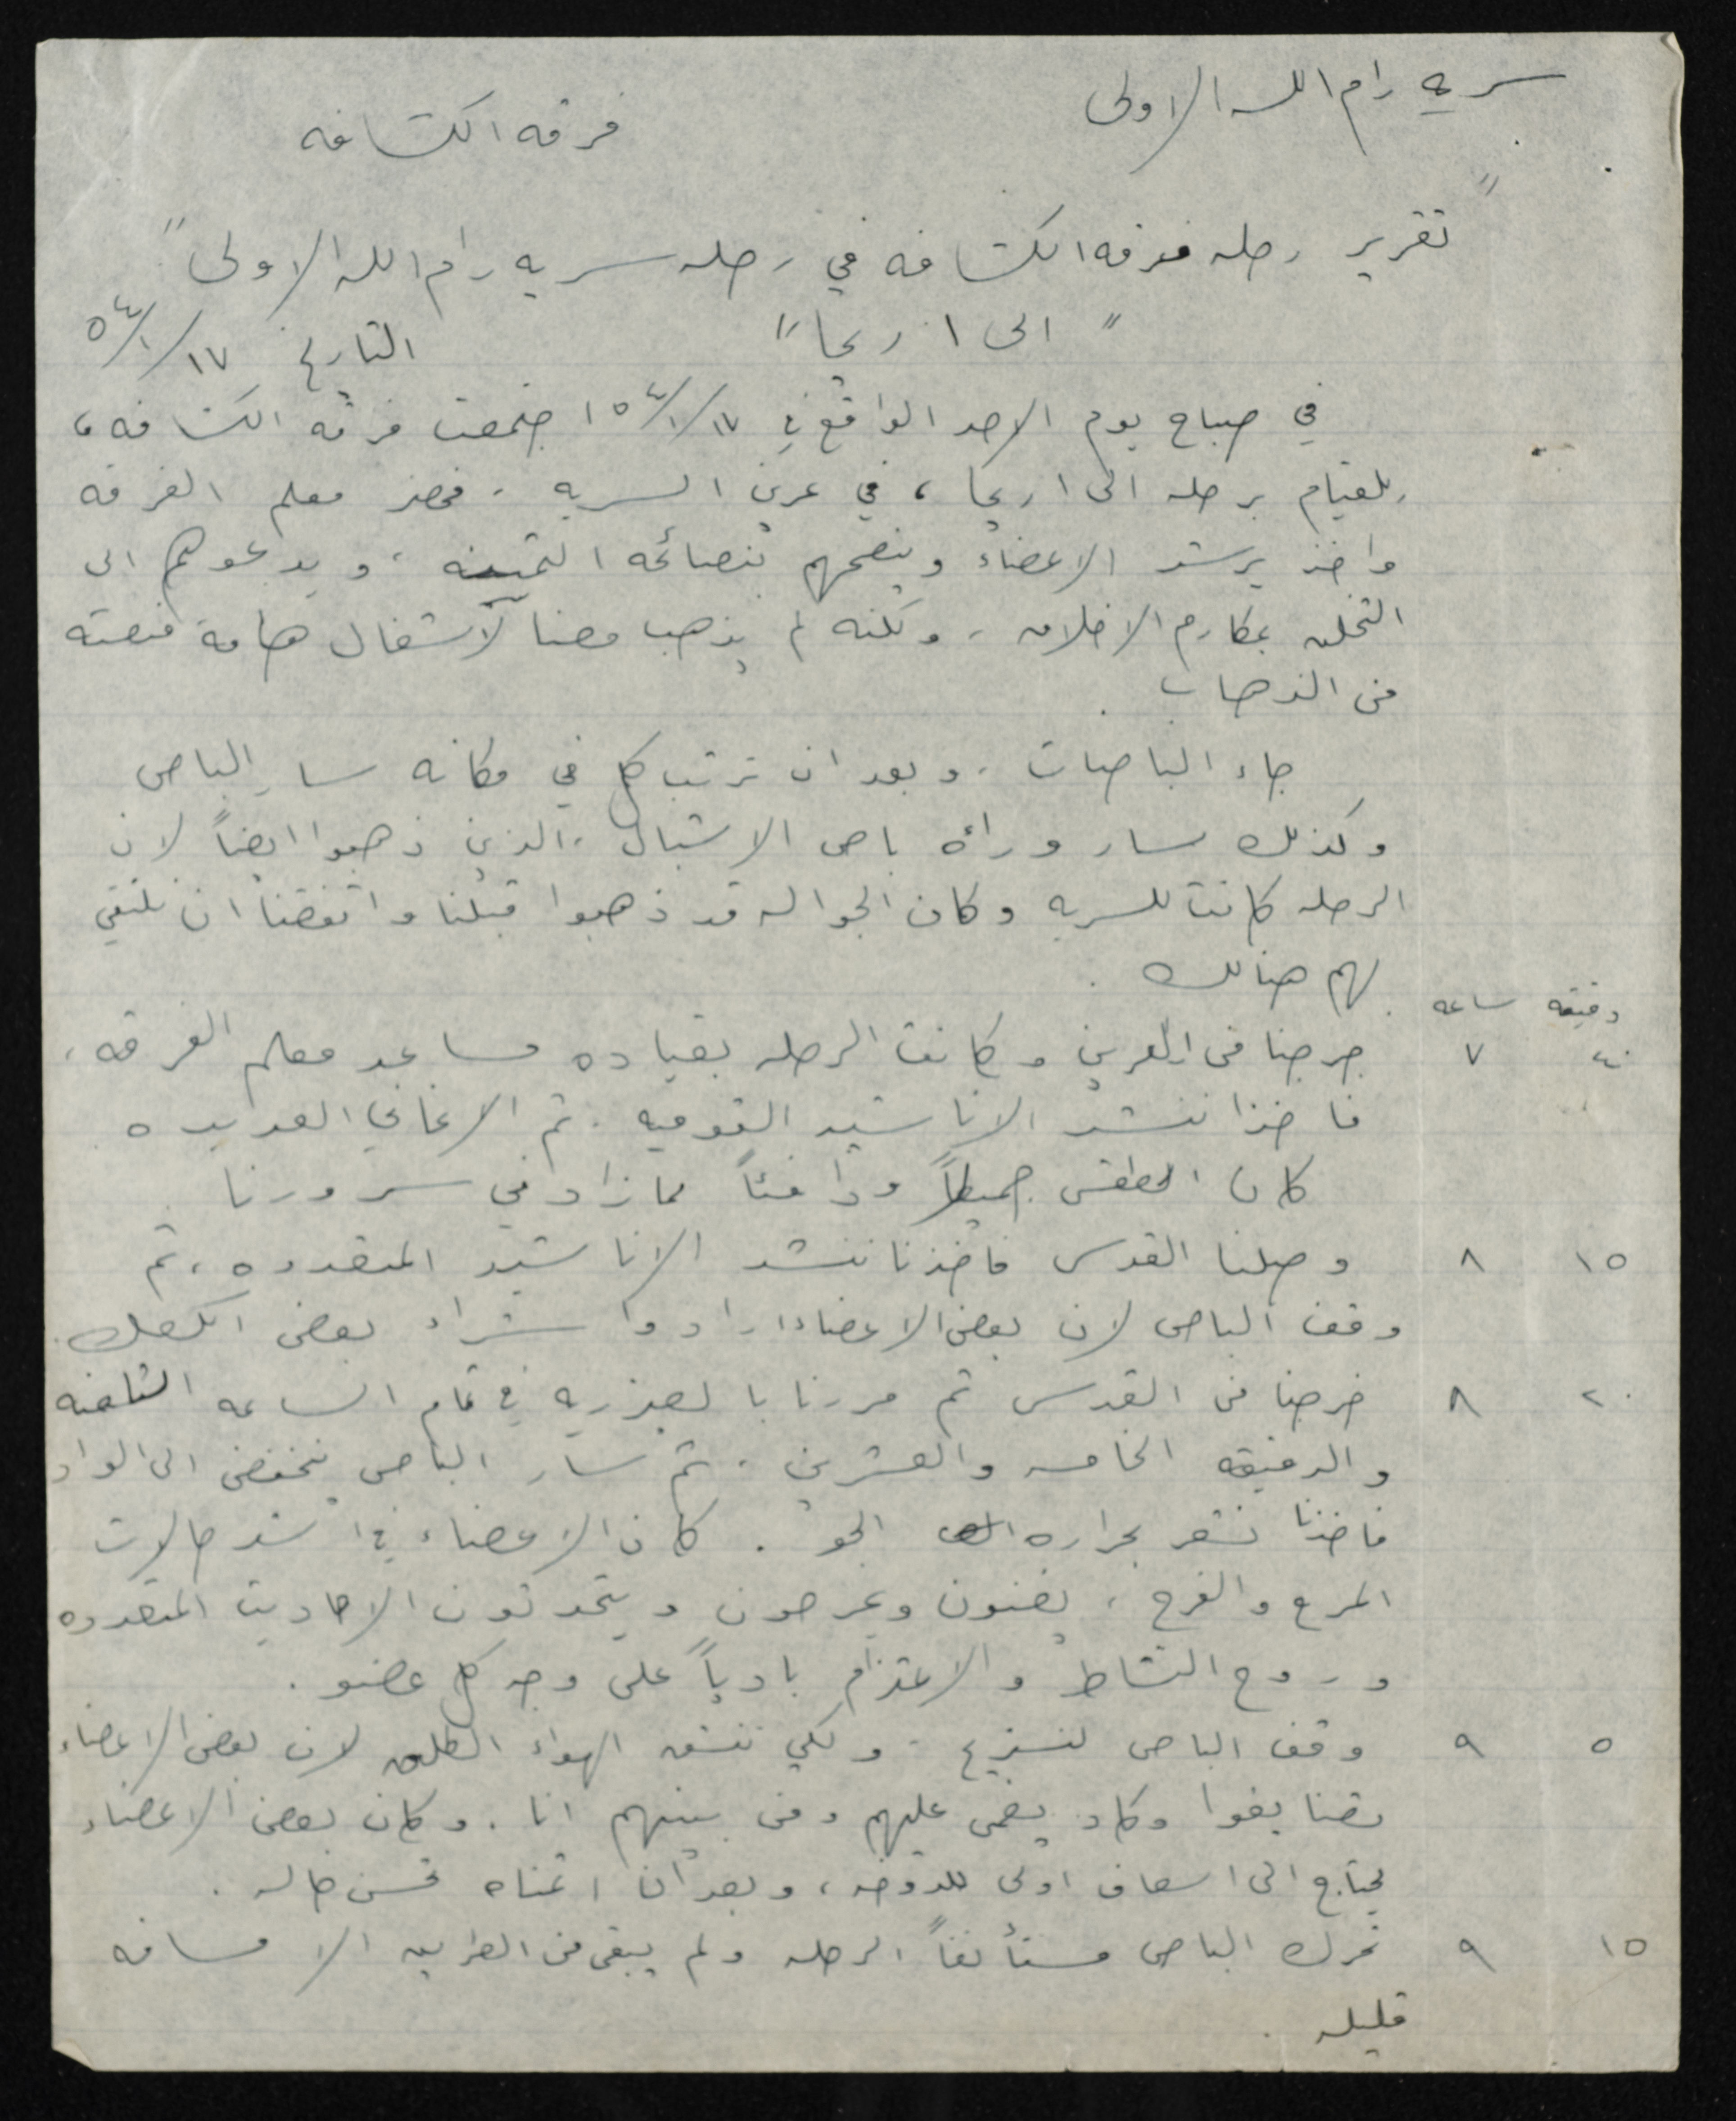 سريه رام الله الاولى
فرقه الكشافه
"تقرير رحله فرقه الكشافه في رحله سريه رام الله الاولى"
"الى اريحا"
التاريخ ١٧/١/٥٤
في صباح يوم الاحد الواقع في ١٧/١/٥٤ اجتمعت فرقه الكشافه،
للقيام برحله الى اريحا، في عرين السريه. فحضر معلم الفرقه
واخذ يرشد الاعضاء وينصحهم بنصائحه الثمينه، ويدعوهم الى
التخلق بمكارم الاخلاق، ولكنه لم يذهب معنا لأشغال هامة منعته
من الذهاب.
جاء الباصات. وبعد ان ترتب كل في مكانه سار الباص
وكذلك سار وراءه باص الاشبال. الذين ذهبوا ايضاً لان
الرحله كانت للسريه وكان الجواله قد ذهبوا قبلنا واتفقنا ان نلتقي
بهم هنالك.
دقيقه ساعه
٤٠ ٧ خرجنا من العرين وكانت الرحله بقياده مساعد معلم الفرقه،
فاخذنا ننشد الاناشيد القوميه. ثم الاغاني العديده
كان الطقس جميلاً ودافئاً مما زاد في سرورنا
١٥ ٨ وصلنا القدس فاخذنا ننشد الاناشيد المتعدده، ثم
وقف الباص لان بعض الاعضاء ارادوا شراء بعض الكعك.
٢٠ ٨ خرجنا من القدس ثم مررنا بالعيزريه في تمام الساعه الثامنه
والدقيقه الخامسه والعشرين. ثم سار الباص ينخفض الى الواد
فاخذنا نشعر بحراره الجو. كان الاعضاء في اشد حالات
المرح والفرح، يغنون ويمرحون ويتحدثون الاحاديث المتعدده
وروح النشاط والاعتزام بادياً على وجه كل عضو.
٥ ٩ وقف الباص لنستريح. ولكي ننشق الهواء الطلق لان بعض الاعضاء
تضايقوا وكاد يغمى عليهم ومن بينهم انا. وكان بعض الاعضاء
يحتاج الى اسعاف اولى للدوخه، وبعد ان اتمناه تحسن حاله.
١٥ ٩ تحرك الباص مستأنفاً الرحله ولم يبقى من الطريق الا مسافه
قليله.